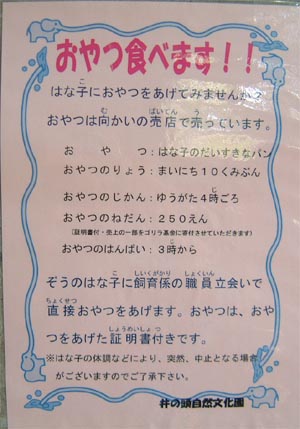 おやつ食べます!!
はな子におやつをあげてみませんか?
おやつは向かいの売店で売っています。
おやつ:はな子のだいすきなパン
おやつのりょう:まいにち10くみぶん
おやつのじかん:ゆうがた4時ごろ
おやつのねだん:250えん
(証明書付・売上の一部をゴリラ基金に寄付させていただきます)
おやつのはんばい:3時から
ぞうのはな子に飼育係の職員立会いで
直接おやつをあげます。おやつは、おや
つをあげた証明書付きです。
※はな子の体調などにより、突然、中止となる場合
がございますのでご了承下さい。
井の頭自然文化園